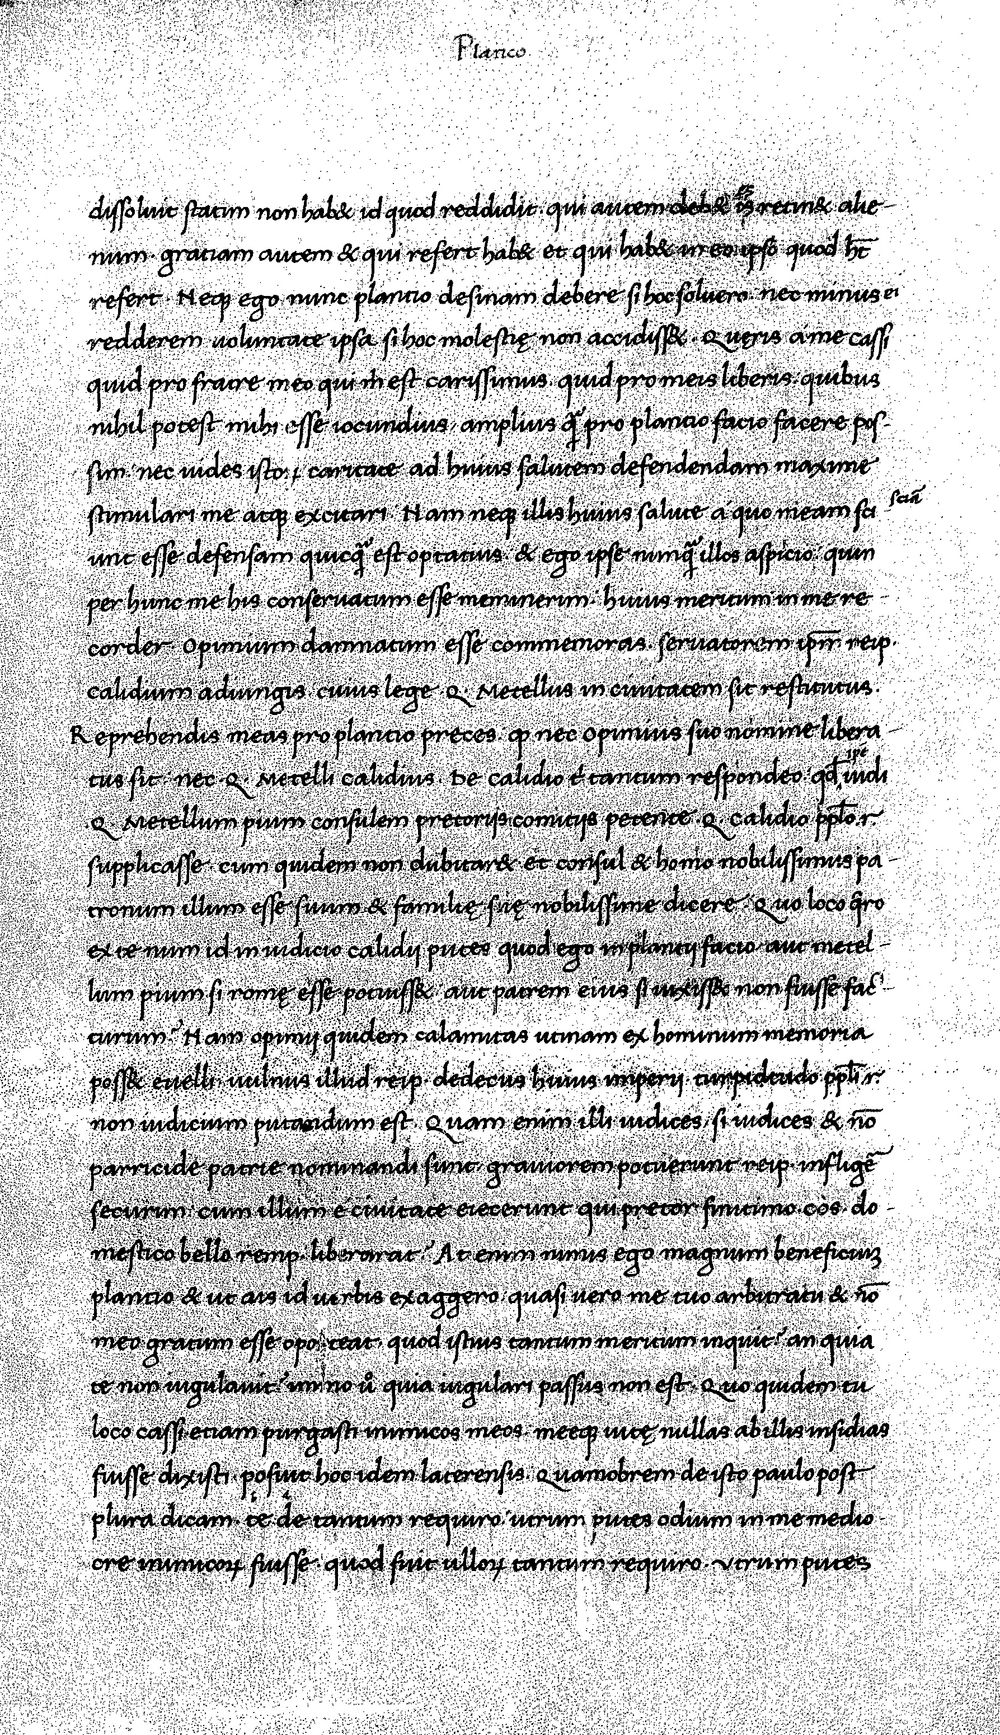 Planco
dissoluit statim non hab& id quod reddidit. qui autem deb& is retin& alie-
num. gratiam autem & qui refert hab& et qui hab& in eo ipso quod hēt
refert. Neqꝫ ego nunc plancio desinam debere si hoc soluero. nec minus ei
redderem uoluntate ipsa si hoc molestię non accidiss&. Quęris a me cassi
quid pro fratre meo qui m̄ est carissimus. quid pro meis liberis. quibus
nihil potest mihi esse iocundius, amplius q̄ pro plancio facio facere pos-
sim. nec uides istoꝝ caritate ad huius salutem defendendam maxime
stimulari me atqꝫ excitari. Nam neqꝫ illis huius salute a quo meam sci sciāt
unt esse defensam quicq̄ est optatius. & ego ipse nunq̄ illos aspicio. quin
per hunc me his conseruatum esse meminerim. huius meritum in me re-
corder. Opimium damnatum esse commemoras. seruatorem ipm̄ reip.
calidium adiungis. cuius lege Q. Metellus in ciuitatem sit restitutus.
Reprehendis meas pro plancio preces. ꝙ nec Opimius suo nomine libera-
tus sit. nec Q. Metelli calidius. De calidio t̄ tantum respondeo. qd̄ ipse uidi
Q. Metellum pium consulem pretorijs comitijs petente Q. Calidio pplo.r.
supplicasse. cum quidem non dubitar& et consul & homo nobilissimus pa-
tronum illum esse suum & familię suę nobilissime dicere. Quo loco q̄ro
ex te num id in iudicio calidij putes quod ego in plancij facio. aut metel-
lum pium si romę esse potuiss& aut patrem eius si uixiss& non fuisse fac-
turum? Nam opimij quidem calamitas utinam ex hominum memoria
poss& euelli. uulnus illud reip. dedecus huius imperij. turpidtudo ppli.r.
non iudicium putandum est. Quam enim illi iudices, si iudices & nō
parricide patrie nominandi sunt, grauiorem potuerunt reip. infligē
securim. cum illum e ciuitate eiecerunt qui pretor finitimo. cos. do-
mestico bello remp. liberarat? At enim nimis ego magnum beneficiuꝫ
plancio & ut ais id uerbis exaggero. quasi uero me tuo arbitratu & nō
meo gratum esse oporteat. quod istius tantum meritum inquit? an quia
te non iugulauit? immo uͦ quia iugulari passus non est. Quo quidem tu
loco cassi etiam purgasti inimicos meos. meeqꝫ uitę nullas ab illis insidias
fuisse dixisti. posuit hoc idem laterensis. Quamobrem de isto paulo post
plura dicam. te de tantum requiro. utrum putes odium in me medio-
cre inimicoꝝ fuisse. quod fuit ulloꝝ tantum requiro. Vtrum putes